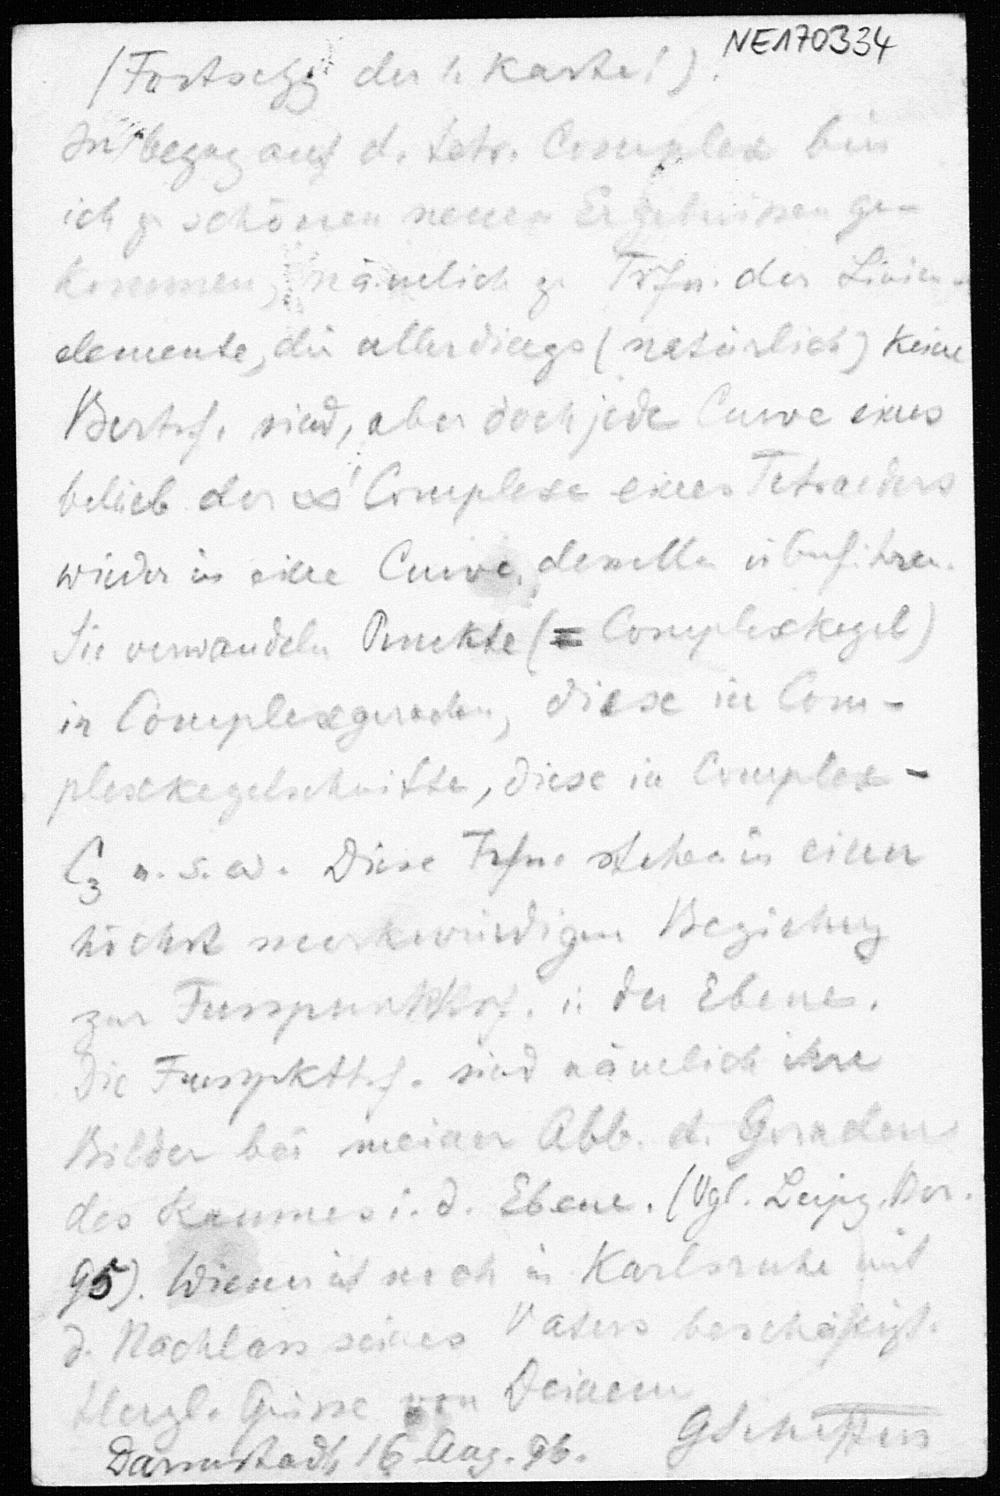 NE170334
(Fortsetzg der 1. Karte!)
In Bezug auf d. tetr. Complex bin
ich z. schönen neuen Ergebnissen ge-
kommen, nämlich z. Trfn. der Linien-
elemente, die allerdings (natürlich) keine
Bertrf. sind, aber doch jede Curve eines
belieb. der ∞¹ Complexe eines Tetraeders
wieder in eine Curve desselben überführen.
Sie verwandeln Punkte (= Complexkegel)
in Complexgeraden, diese in Com-
plexkegelschnitte, diese in Complex-
C₃ u.s.w. Diese Trfn. stehen in einer
höchst merkwürdigen Beziehung
zur Fusspunkttrf. i. der Ebene.
Die Fusspkttrf. sind nämlich ihre
Bilder bei meiner Abb. d. Geraden
des Raumes i. d. Ebene. (Vgl. Leipz. Ber.
95). Wiener ist noch in Karlsruhe mit
d. Nachlass seines Vaters beschäftigt.
Herzl. Grüsse von Deinem
GScheffers
Darmstadt, 16. Aug. 96.